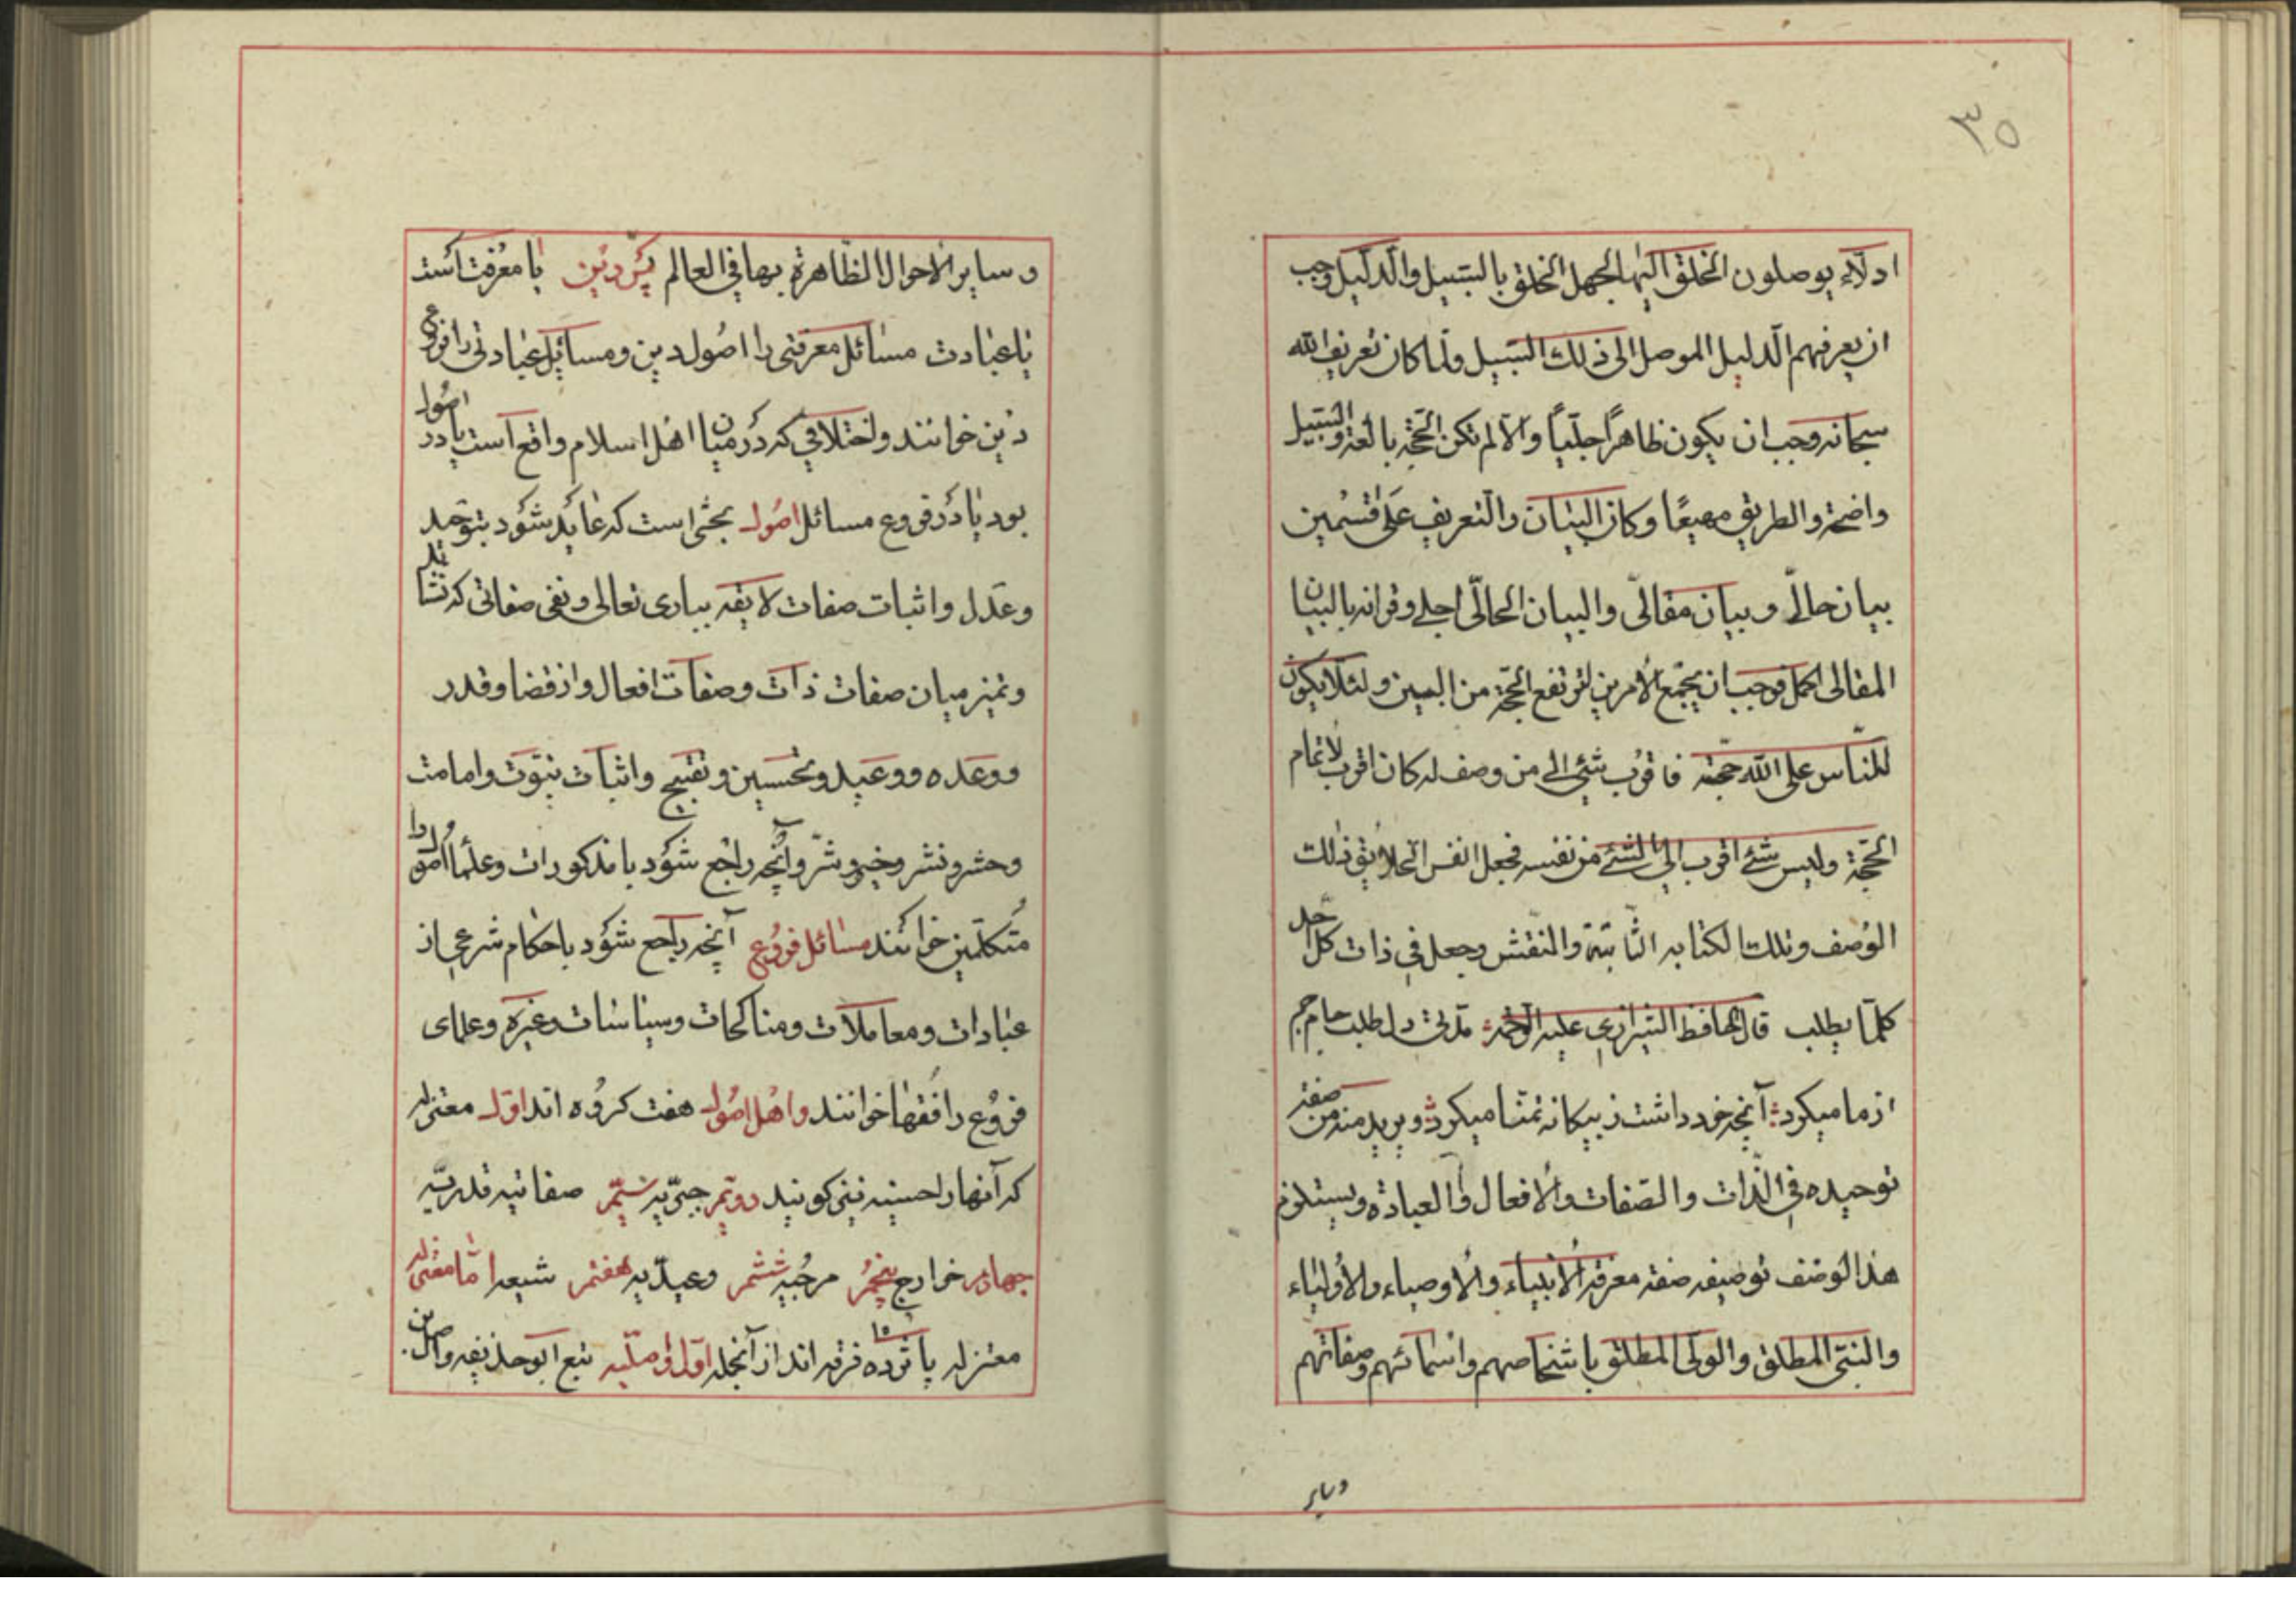 ٣٥
ادلّاء يوصلون الخلق اليها لجهل الخلق بالسّبيل والدّليل وجب
ان يعرفهم الدّليل الموصل الى ذلك السّبيل ولمّا كان تعريف الله
سبحانه وجب ان يكون ظاهراً جليّاً والّا لم تكن الحجّة بالغة والسّبيل
واضحة والطريق مهيعًا وكان البيان والتعريف على قسمين
بيان حالّى وبيان مقالّى والبيان الحالّى اجلى وقرانه بالبيان
المقالى اكمل فوجب ان يجمع الأمرين لترتفع الحجّة من البين ولئلّا يكون
للنّاس على الله حجّة فاقرب شئ الى من وصف له كان اقرب لاتمام
الحجّة وليس شئ اقرب الى الشئ من نفسه فجعل انفس الخلايق ذلك
الوصف وتلك الكتابه الثّابتة والنقش وجعل فى ذات كلّ احد
كلّما يطلب قال الحافظ الشيرازى عليه الرّحمة دل طلب جام جم
از ما ميكرد آنچه خود داشت ز بيكانه تمنّا ميكرد ويريد منه من صفة
توحيده فى الذّات والصّفات والافعال والعبادة ويستلزم
هذا الوصف توصيفه صفة معرفة الأنبياء والأوصياء والأولياء
والنبىّ المطلق والولىّ المطلق باشخاصهم واسمائهم وصفاتهم
وساير
وساير الأحوال الظّاهرة بها فى العالم پس دين يا معرفت است
يا عبادت مسائل معرفتى را اصول دين ومسايل عبادتى را فروع
دين خوانند واختلافى كه در ميان اهل اسلام واقع است يا در اصول
بود يا در فروع مسائل اصول بحثى است كه عايد شود بتوحيد
وعدل واثبات صفات لايقه ببارى تعالى ونفى صفاتى كه نشايد
وتميز ميان صفات ذات وصفات افعال واز قضا وقدر
ووعده ووعيد وتحسين وتقبيح واثبات نبوّت وامامت
وحشر ونشر وخير وشرّ وآنچه راجع شود با مذكورات وعلما اصول را
متكلّمين خوانند مسائل فروع آنچه راجع شود باحكام شرعى از
عبادات ومعاملات ومناكحات وسياسات وغيره وعلماى
فروع را فقها خوانند واهل اصول هفت كروه اند اوّل معتزله
كه آنها را حسينه نيز كويند دويّم جبريّه سيّم صفاتيه قدريّه
چهارم خوارج پنجم مرجيه ششم وعيديّه هفتم شيعه امّا معتزله
معتزله پانزده فرقه اند از آنجمله اوّل تبع ابو حذيفه واصل بن